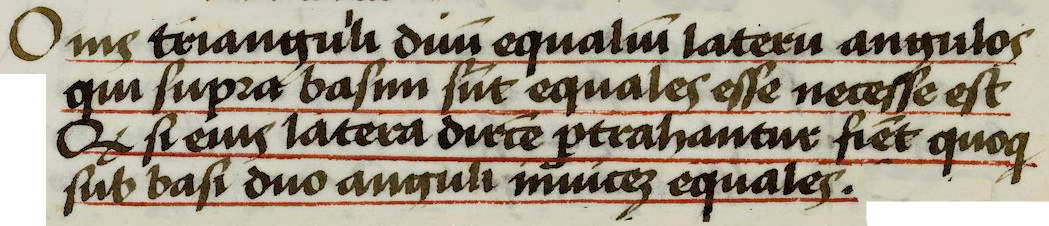 Oniꝭ trianguli duū equaliū lateru angulos
qui supra basim sūt equales esse necesse est
Qꝫ si eius latera dirc̄e ꝓtrahantur fiēt quoqꝫ
sub basi duo anguli īnuiceꝫ equales.